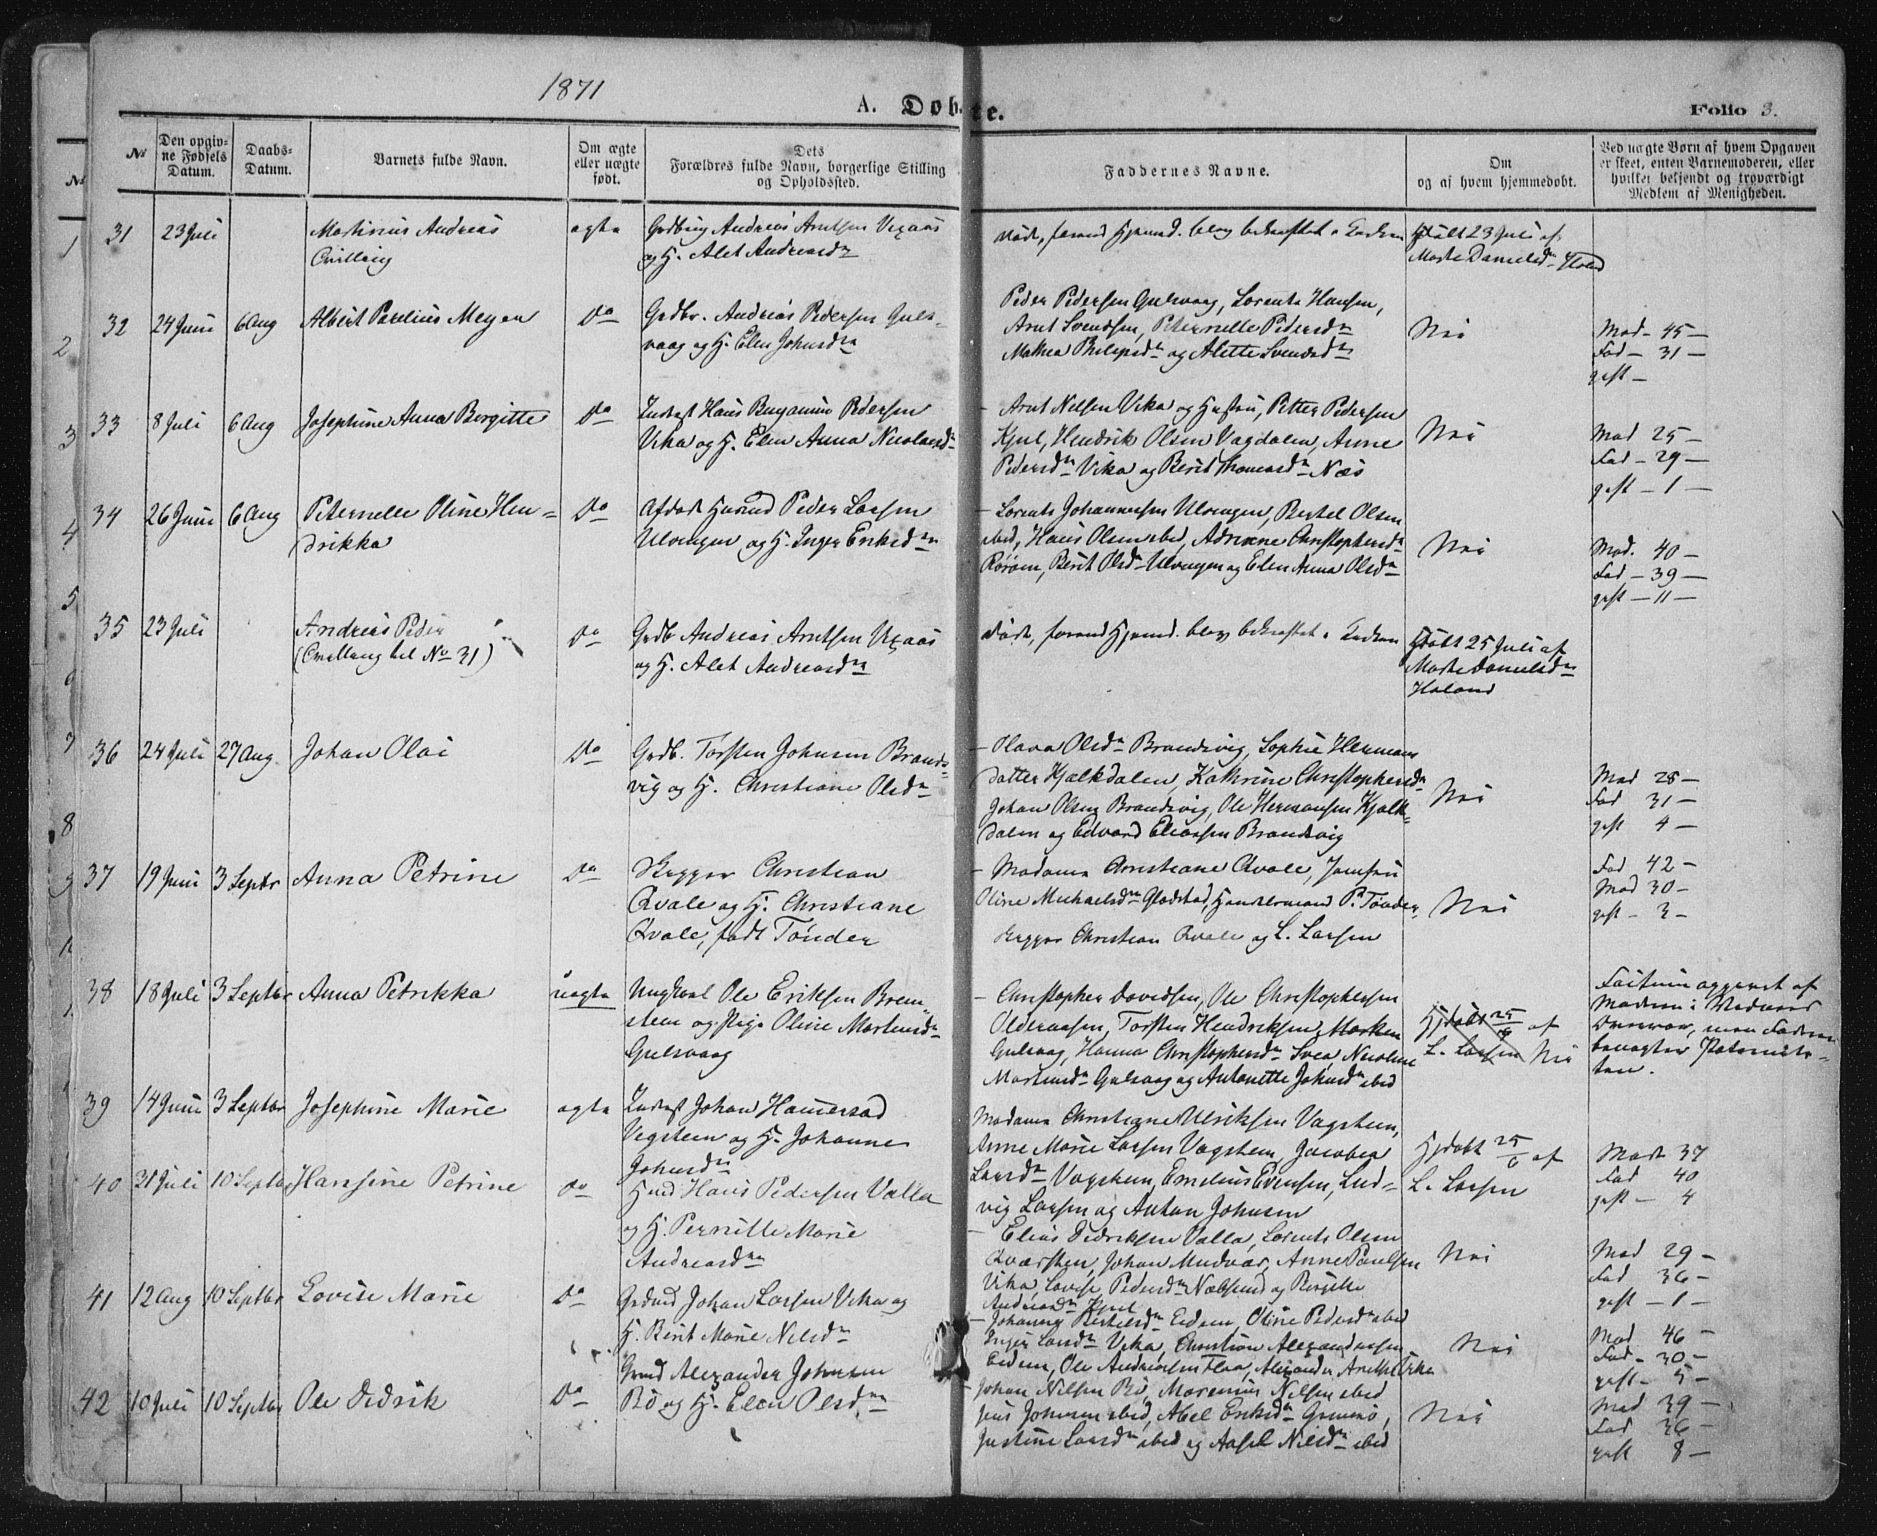 1871
A. Døbte.
Folio 3.
No
Den opgiv-
ne Fødsels
Datum.
Daabs-
Datum.
Barnets fulde Navn.
Om ægte
eller uægte
født.
Dets
Forældres fulde Navn, borgerlige Stilling
og Opholdssted.
Faddernes Navne.
Om
og af hvem hjemmedøbt.
Ved uægte Børn af hvem Opgaven
er skeet, enten Barnemoderen, eller
hvilket bekjendt og troværdigt
Medlem af Menigheden.
31 23 Juli Martinius Andreas ægte Andreas Arntsen
Tvilling og H. Alet Andreasdn
døde, forend Hjemmed. blev bekræftet i Kirken
døbt 23 Juli af
Marte Danielsdn
32 24 Juni 6 Aug Albert Parelius Meyer Do Grdbr. Andreas Pedersen Guls-
vaag og H. Elen Johnsdn
Peder Pedersen Gulsvaag, Lorents Hansen,
Arnt Svendsen, Peternelle Pedersdn
Mathea Philipsdn og Alette Svendsdn
Nei
Mod - 45 -
Fad - 31 -
gift -
33 8 Juli 6 Aug Josephine Anna Birgitte Do Inderst Hans Benjamin Pedersen
Vika og H. Elen Anna Nicolaisdn
- Arnt Nilsen Vika og Hustru, Petter Pedersen
Kjul, Hendrik Olsen Vagdalen, Anne
Pedersdn Vika og Berit Thomasdn Næs
Nei
Mod 25 -
Fad - 29 -
gift - 1 -
34 26 Juni 6 Aug Peternelle Oline Hen-
drikka
Do Peder Larsen
Ulvingen og H. Inger Eriksdn
- Lorents Johannesen Ulvingen, Bertel Olsen
ibid, Hans Olsen ibid, Adriane Christophersdn
Rørøen, Berit Olsdn Ulvingen og Elen Anna Olsdn
Nei
Mod. 40 -
Fad - 39 -
gift - 11 -
35 23 Juli Andreas Peder
(Tvilling til No 31)
Do Grdb Andreas Arntsen
og H. Alet Andreasdn
døde, forend Hjemmd. blev bekræftet i Kirken
døbt 25 Juli af
Marte Danielsdn
Holand
36 24 Juli 27 Aug Johan Olai Do Grdb. Torsten Johnsen Brands-
vig og H. Christiane Olsdn
- Olava Olsdn Brandsvig, Sophie Hermans
datter Hjalkdalen, Kathrine Christophersdn
Johan Olsen Brandsvig, Ole Hermansen Kjalk-
dalen og Edvard Eliassen Brandsvig
Nei
Mod 28 -
Fad 31 -
gift 4 -
37 19 Juni 3 Septbr Anna Petrine Do Skipper Christian
Qvale og H. Christiane
Qvale, født Tønder
- Madame Christiane Qvale, Jomfru
Oline Michaelsdn Gladstad, Handelsmand P. Tønder,
Skipper Christian Qvale og L. Larsen
Nei
Fad 42 -
Mod 30 -
gift - 3 -
38 18 Juli 3 Septbr Anna Petrikka uægte Ungkarl Ole Eriksen Brem-
stein og Pige Oline Martinusdn
Gulsvaag
- Christopher Davidsen, Ole Christophersen
Torsten Hendriksen
Gulsvaag, Hanna Christophersdn Nicoline
Martinusdn Gulsvaag og Antonette Johnsdn ibid
Hjdøbt 25/6 af
L. Larsen Nei
opgivet af
Moderen i
men Faderen
benægter Paternite-
ten.
39 14 Juni 3 Septbr Josephine Marie ægte Inderst Johan
Vegsteen og H. Johanne
Johnsdn
Madame Christiane Ulriksen Vagsteen,
Anne Marie Larsen Vagsteen, Jacobea
Larsdn Vagsteen, Emelius Evensen, Lud-
vig Larsen og Anton Johnsen
Hjdøbt 25/6 af
L. Larsen
Mod 37
Fad 40
gift - 4
40 31 Juli 10 Septbr Hansine Petrine Do Hans Pedersen Valla
og H. Pernille Marie
Andreasdn
- Elias Didriksen Valla, Lorents Olsen
Johan Anne Paulsen
Vika, Lovise Pedersdn og Birgitte
Andreasdn
Nei
Mod 29 -
Fad 36 -
gift - 1 -
41 12 Aug 10 Septbr Lovise Marie Do Johan Larsen Vika og
H. Berit Marie Nilsdn
- Bertelsdn Eidem, Oline Pedersdn ibid
Inger Larsdn Vika, Christian Alexandersen
Eidem, Ole Andreassen
Nei
Mod 46 -
Fad - 30 -
gift - 5 -
42 10 Juli 10 Septbr Ole Didrik Do Alexander Johnsen
Bø og H. Elen Olsdn
Johan Nilsen Bø, Marenius Nilsen ibid
Jens Johnsen ibid, Abel Eriksdn
Justine Larsdn ibid og Aasel Nilsdn ibid
Nei
Mod 39 -
Fad 36 -
gift 8 -